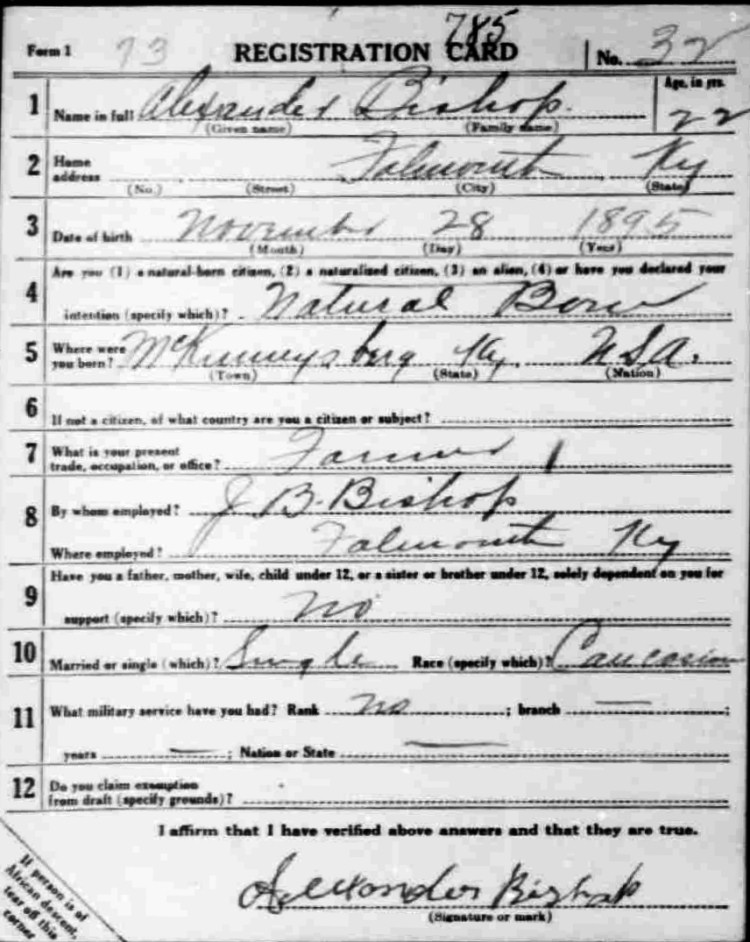 785
Form 1 73 REGISTRATION CARD No. 32
1 Name in full Alexander Bishop Age, in yrs. 22
(Given name) (Family name)
2 Home address Falmouth Ky
(No.) (Street) (City) (State)
3 Date of birth November 28 1895
(Month) (Day) (Year)
4 Are you (1) a natural-born citizen, (2) a naturalized citizen, (3) an alien, (4) or have you declared your
intention (specify which)? Natural Born
5 Where were you born? McKinneysberg Ky. U.S.A.
(Town) (State) (Nation)
6 If not a citizen, of what country are you a citizen or subject?
7 What is your present
trade, occupation, or office? Farmer
8 By whom employed? J. B. Bishop
Where employed? Falmouth Ky
9 Have you a father, mother, wife, child under 12, or a sister or brother under 12, solely dependent on you for
support (specify which)? No
10 Married or single (which)? Single Race (specify which)? Caucasian
11 What military service have you had? Rank No ; branch — ;
years — ; Nation or State —
12 Do you claim exemption
from draft (specify grounds)?
I affirm that I have verified above answers and that they are true.
If person is of
African descent,
tear off this
corner
Alexander Bishop
(Signature or mark)